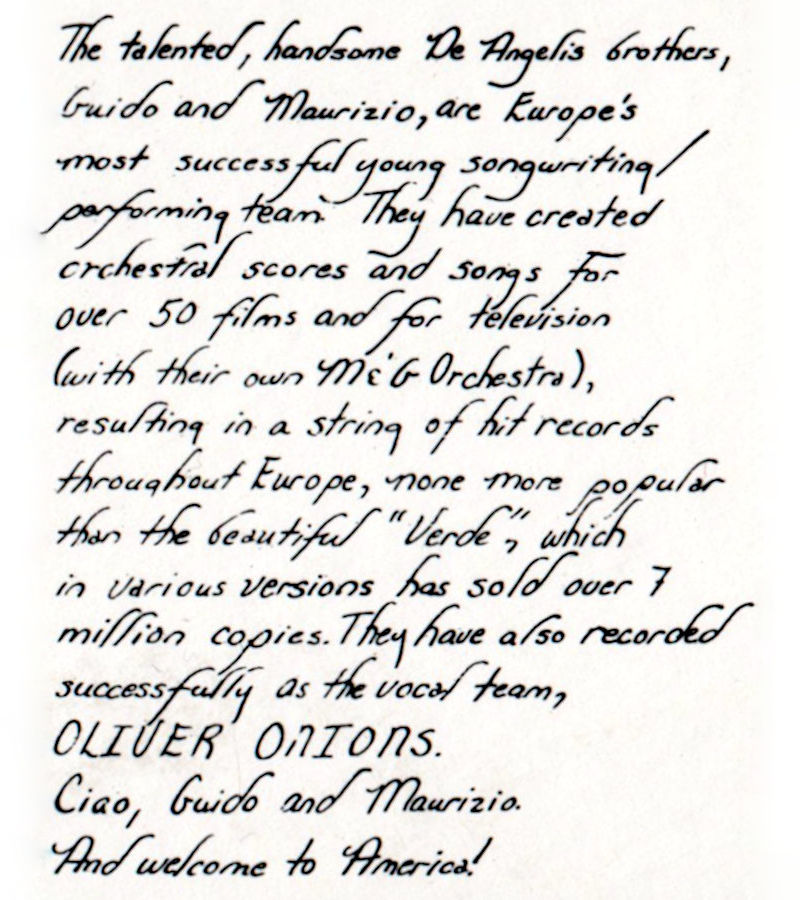 The talented, handsome De Angelis brothers,
Guido and Maurizio, are Europe's
most successful young songwriting/
performing team. They have created
orchestral scores and songs for
over 50 films and for television
(with their own M&G Orchestra),
resulting in a string of hit records
throughout Europe, none more popular
than the beautiful "Verde", which
in various versions has sold over 7
million copies. They have also recorded
successfully as the vocal team,
OLIVER ONIONS.
Ciao, Guido and Maurizio.
And welcome to America!